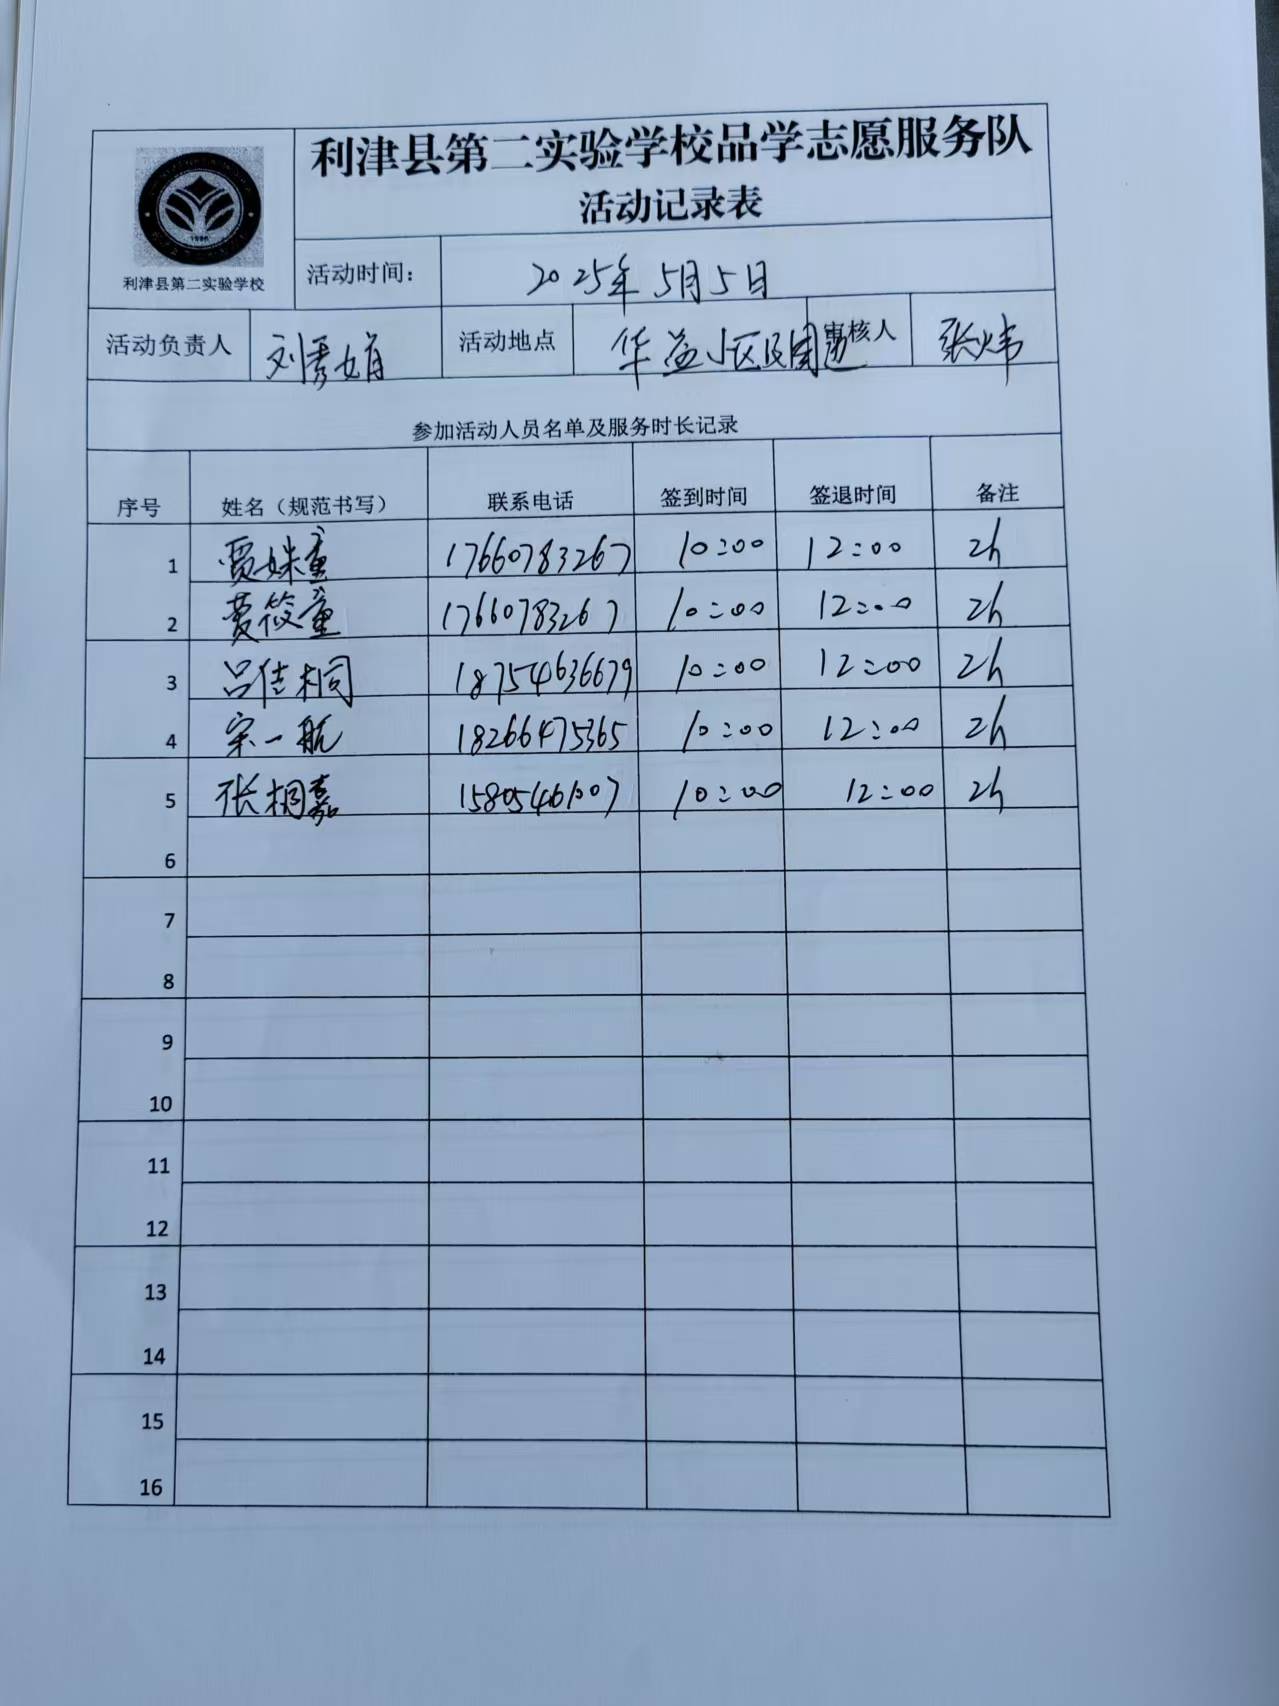 利津县第二实验学校品学志愿服务队
活动记录表
1996
利津县第二实验学校
活动时间： 2025年5月5日
活动负责人 刘秀娟 活动地点 华益小区及周边 审核人 张炜
参加活动人员名单及服务时长记录
序号 姓名（规范书写） 联系电话 签到时间 签退时间 备注
1 贾姝童 17660783267 10:00 12:00 2h
2 贾筱童 17660783267 10:00 12:00 2h
3 吕佳桐 18754636679 10:00 12:00 2h
4 宋一航 18266475365 10:00 12:00 2h
5 张桐嘉 10:00 12:00 2h
6
7
8
9
10
11
12
13
14
15
16